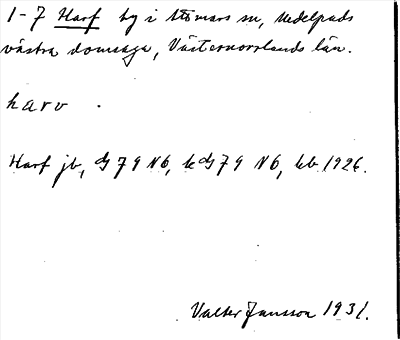 1-7 Harf by i Attmars sn, Medelpads
västra domsaga, Västernorrlands län.
harv .
Harf jb, GS 79 NÖ, k GS 79 NÖ, kb 1926.
Valter Jansson 1931.